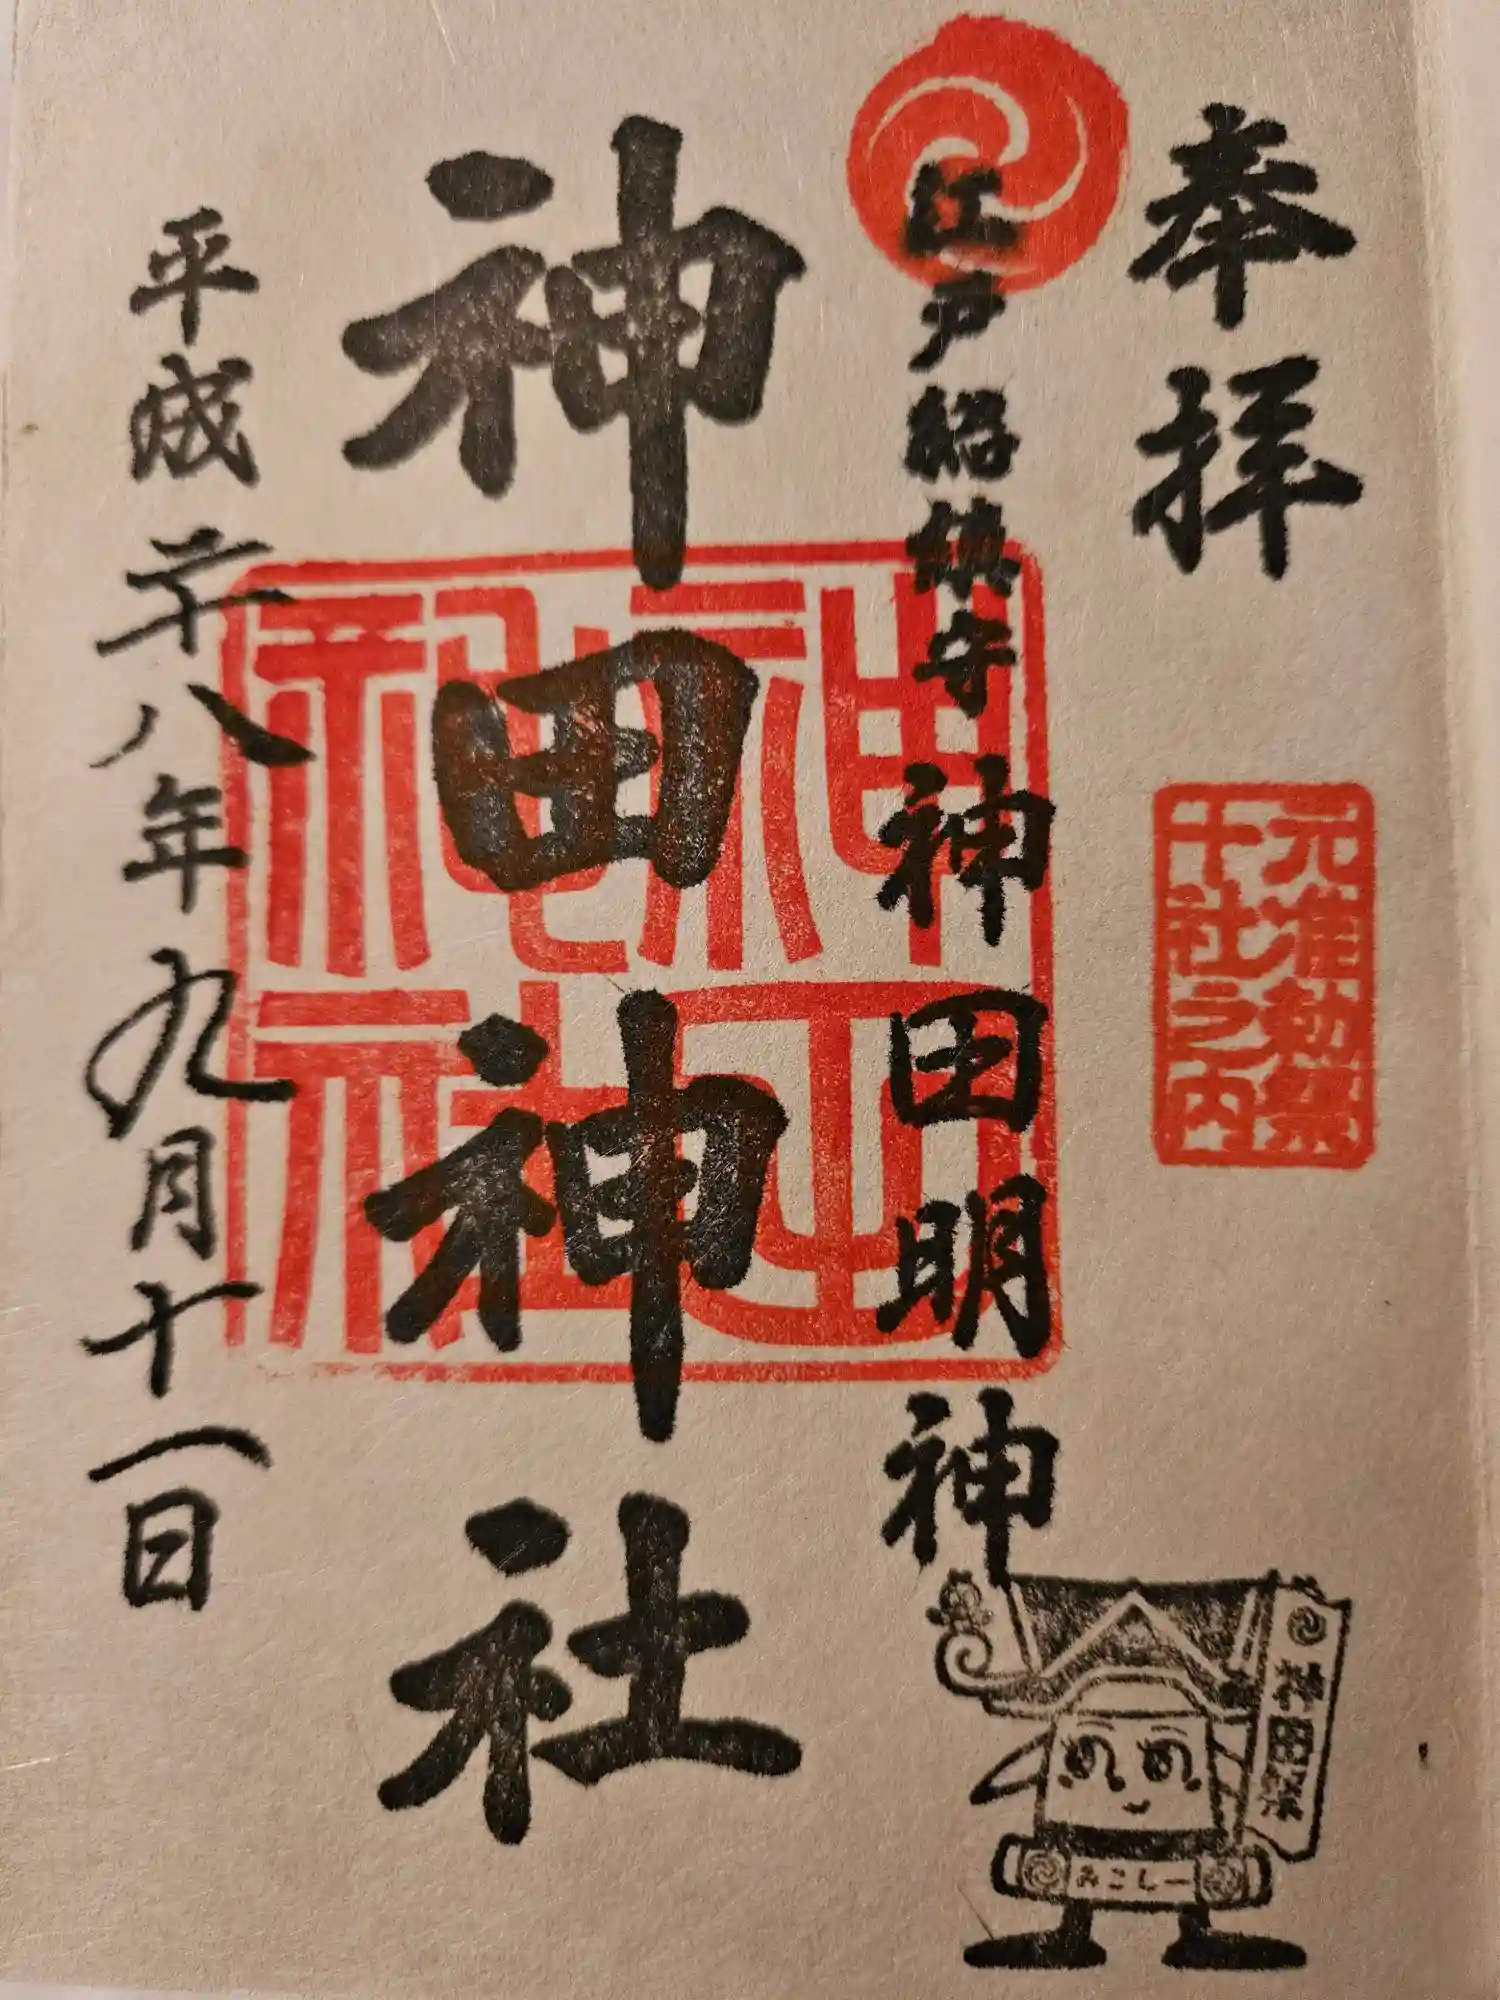 奉拝
元准勅祭
十社之内
江戸総鎮守 神田明神
神田神社
神田
神社
平成二十八年九月十一日
神田祭
みこしー